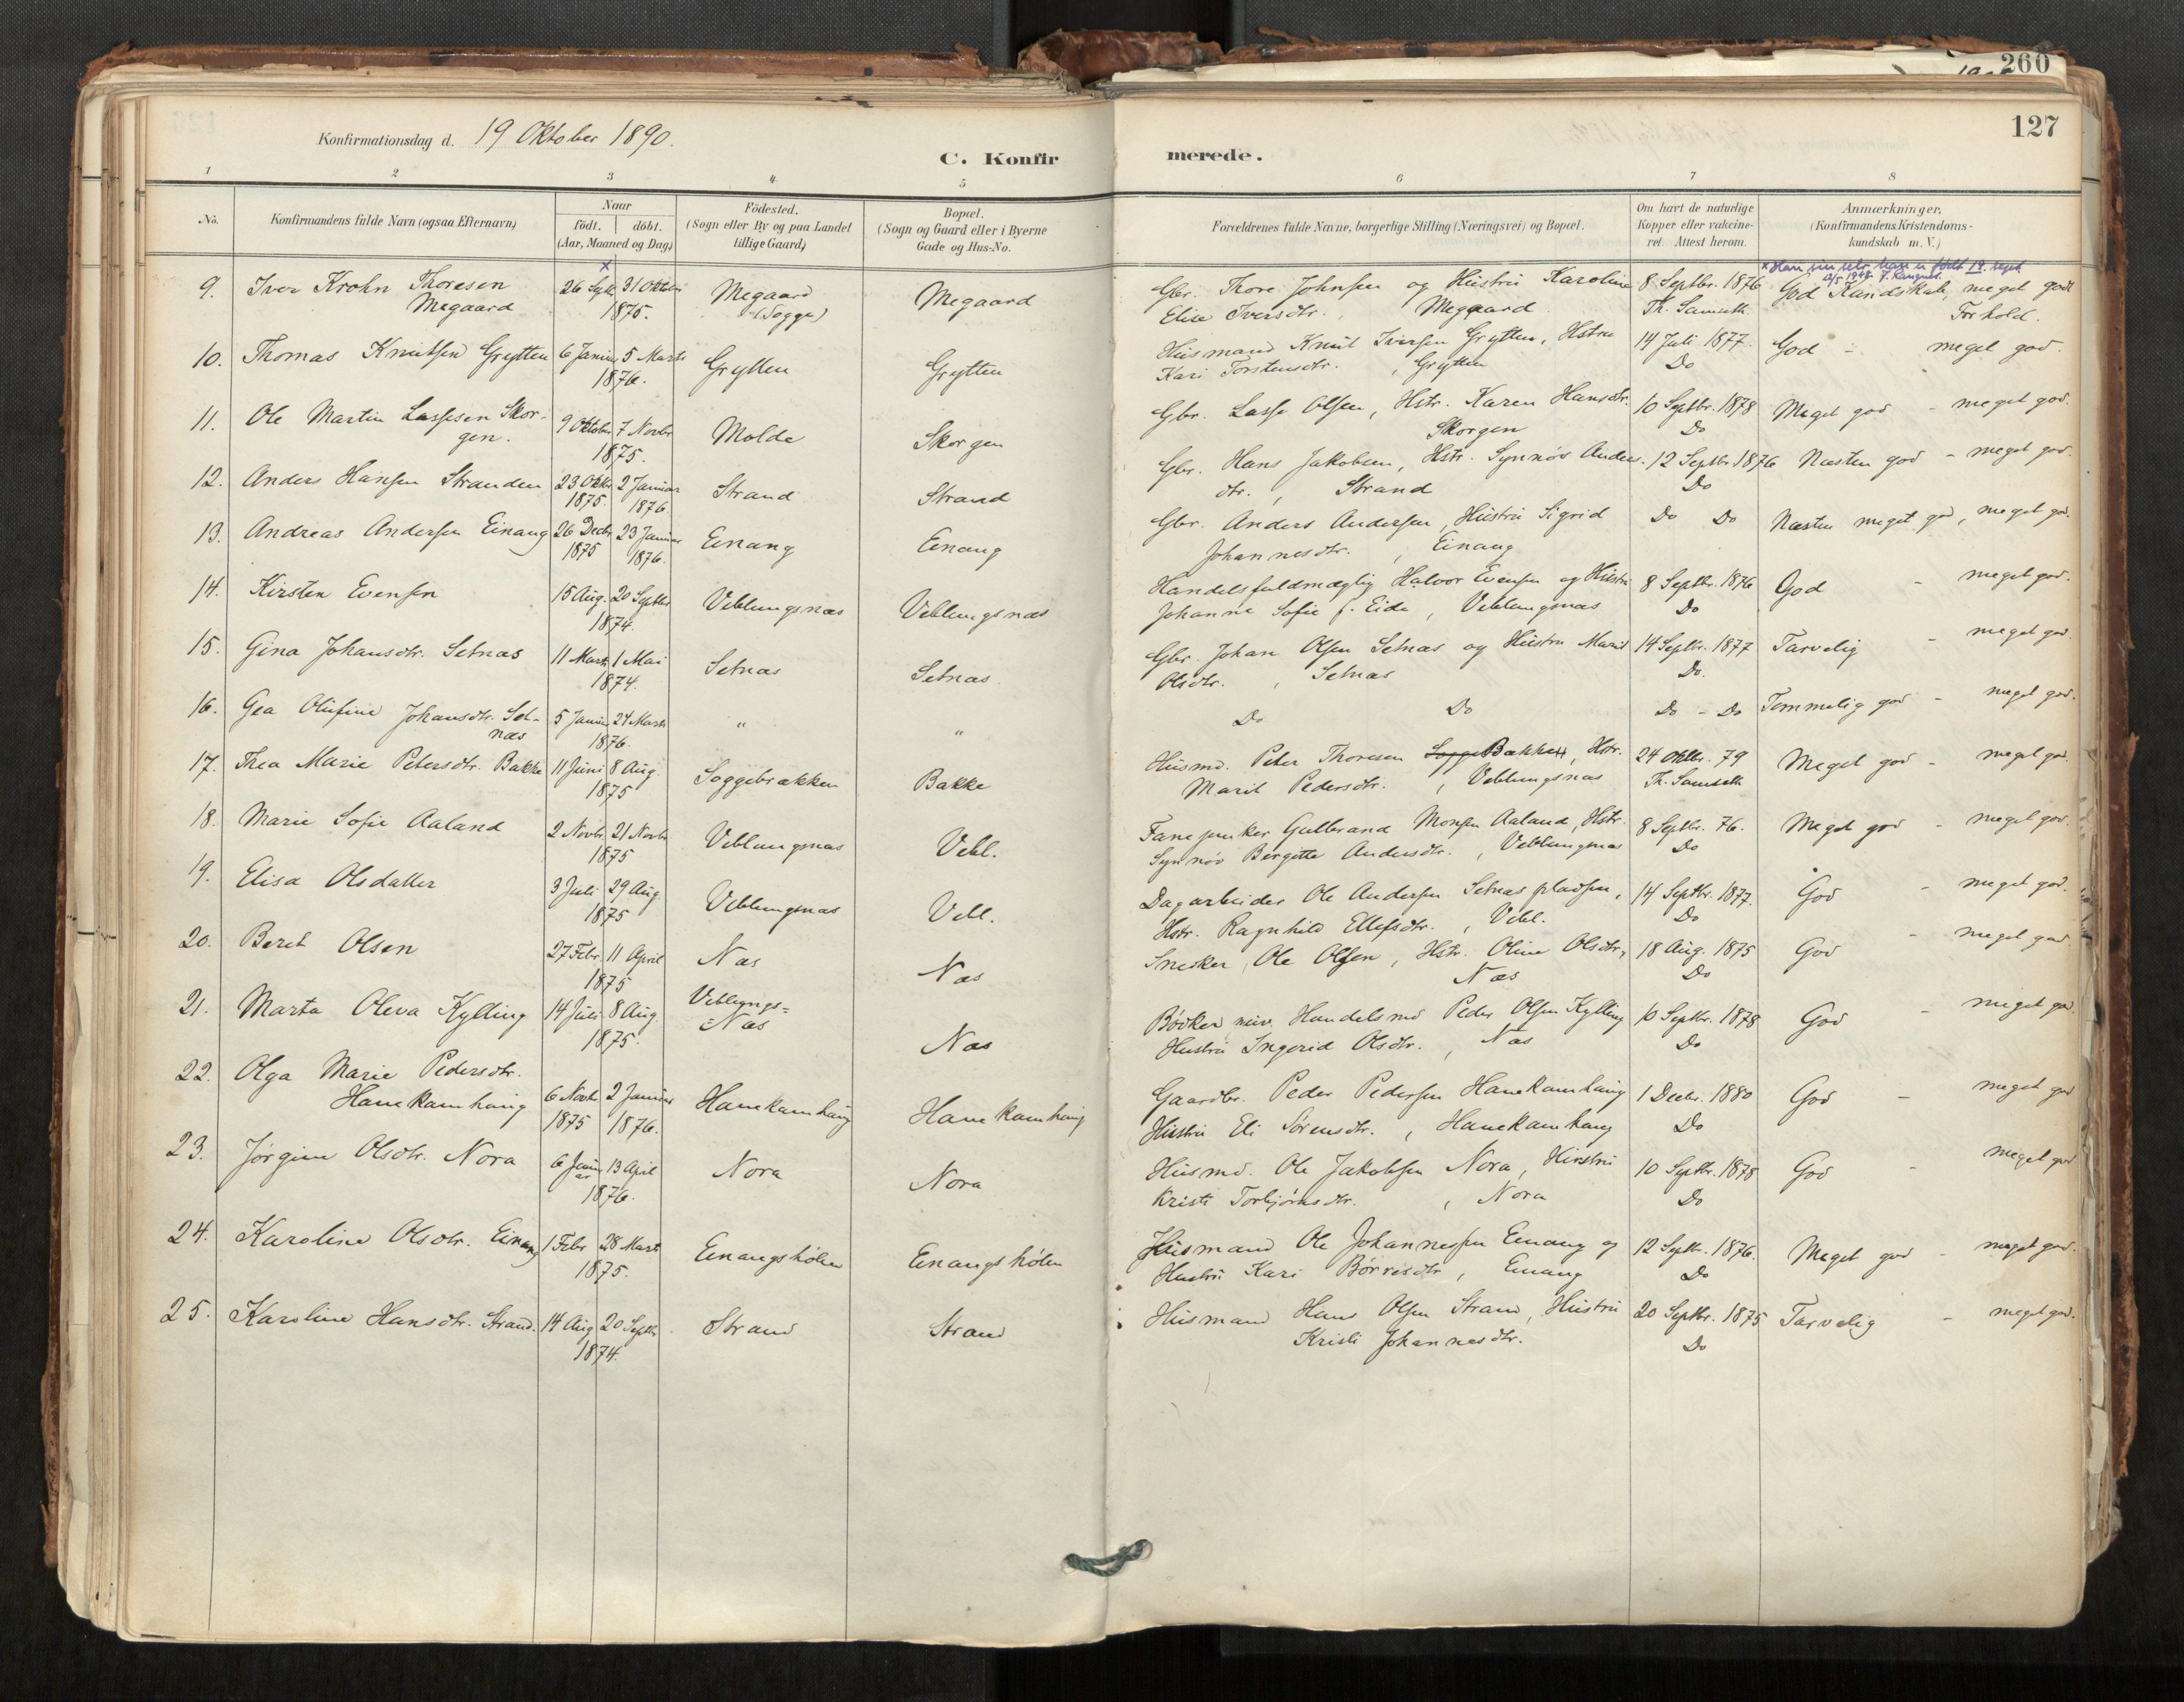 260
127
Konfirmationsdag d. 19 Oktober 1890.
C. Konfirmerede.
1 2 3 4 5 6 7 8
No.
Konfirmandens fulde Navn (ogsaa Efternavn)
Naar
födt. döbt.
(Aar, Maaned og Dag)
Födested.
(Sogn eller By og paa Landet
tillige Gaard)
Bopæl.
(Sogn og Gaard eller i Byerne
Gade og Hus-No.
Forældrenes fulde Navne, borgerlige Stilling (Næringsvei) og Bopæl.
Om havt de naturlige
Kopper eller vakcine-
ret. Attest herom.
Anmærkninger,
(Konfirmandens Kristendoms-
kundskab m. V.)
x
født 19. sept.
9. Iver Krohn Thoresen 26 Septbr 31 Oktober Megaard Megaard Gbr. Thore Johnsen og Hustru Karoline 8 Septbr. 1876 God Kundskab, meget godt
Megaard 1875. (Sogge) Elise Iversdtr., Megaard Th. Samseth Forhold.
10. Thomas Knutsen Grytten 6 Januar 5 Marts Grytten Grytten Husmand Knut Iversen Grytten, Hstru 14 Juli 1877. God - meget god.
1876. Kari Torstensdtr., Grytten Do
11. Ole Martin Lassesen Skor- 9 Oktober 7 Novbr Molde Skorgen Gbr. Lasse Olsen, Hstr. Karen Hansdtr. 10 Septbr. 1878 Meget god - meget god.
gen. 1875. Skorgen Do
12. Anders Hansen Stranden 23 Oktbr 2 Januar Strand Strand Gbr. Hans Jakobsen, Hstr. Synnöv Anders- 12 Septbr. 1876 Næsten god - meget god.
1875. 1876. dtr., Strand Do
13. Andreas Andersen Einang 26 Decbr 23 Januar Einang Einang Gbr. Anders Andersen, Hustru Sigrid Do Do Næsten meget god, meget god.
1875 1876. Johannesdtr., Einang
14. Kirsten Evensen 15 Aug. 20 Septbr Veblungsnæs Veblungsnæs Handelsfuldmægtig Halvor Evensen og Hustru 8 Septbr. 1876 God - meget god.
1874. Johanne Sofie f. Eide, Veblungsnæs Do
15. Gina Johansdtr. Setnæs 11 Marts 1 Mai Setnæs Setnæs. Gbr. Johan Olsen Setnæs og Hustru Marit 14 Septbr. 1877 Tarvelig - meget god.
1874. Olsdtr., Setnæs Do.
16. Gea Olufine Johansdtr. Set- 5 Januar 24 Marts " " Do Do Do - Do Temmelig god - meget god.
næs 1876.
17. Thea Marie Petersdtr. Bakke 11 Juni 8 Aug. Soggebrækken Bakke Husmd. Peter Thoresen Sogge Bakken, Hstr. 24 Oktbr. 79 Meget god - meget god.
1875 Marit Pedersdtr., Veblungsnæs Th. Samseth
18. Marie Sofie Aaland 2 Novbr. 21 Novbr Veblungsnæs Vebl. Fanejunker Gulbrand Monsen Aaland, Hstr. 8 Septbr. 76. Meget god - meget god.
1875 Synnöv Bergitte Andersdtr., Veblungsnæs Do
19. Elisa Olsdatter 3 Juli 29 Aug Veblungsnæs Vebl. Dagarbeider Ole Andersen Setnæspladsen, 14 Septbr. 1877. God - meget god.
1875 Hstr. Ragnhild Ellefsdtr., Vebl. Do
20. Beret Olsen 27 Febr. 11 April Næs Næs Snedker Ole Olsen, Hstr. Oline Olsdtr., 18 Aug. 1875 God - meget god.
1875 Næs Do
21. Marta Oleva Kylling 14 Juli 8 Aug Veblungs= Næs Bödker, Handelsmd Peder Olsen Kylling 10 Septbr. 1878 God - meget god.
1875. =Næs Hustru Ingerid Olsdtr., Næs Do
22. Olga Marie Pedersdtr.
Hanekamhaug 6 Novbr. 2 Januar Hanekamhaug Hanekamhaug Gaardbr. Peder Pedersen Hanekamhaug 1 Decbr. 1880 God - meget god
1875 1876. Hustru Eli Sörensdtr., Hanekamhaug Do
23. Jörgine Olsdtr. Nora 6 Januar 13 April Nora Nora Husmd. Ole Jakobsen Nora, Hustru 10 Septbr. 1878 God - meget god
1876. Kristi Torbjörnsdtr., Nora Do
24. Karoline Olsdtr. Einang 1 Febr 28 Marts Einangshölen Einangshölen Husmand Ole Johannessen Einang og 12 Septbr. 1876. Meget god - meget god.
1875. Hustru Kari Börresdtr, Einang Do
25. Karoline Hansdtr. Strand. 14 Aug 20 Septbr Strand Strand Husmand Hans Olsen Strand, Hustru 20 Septbr. 1875 Tarvelig - meget god.
1874. Kristi Johannesdtr. Do